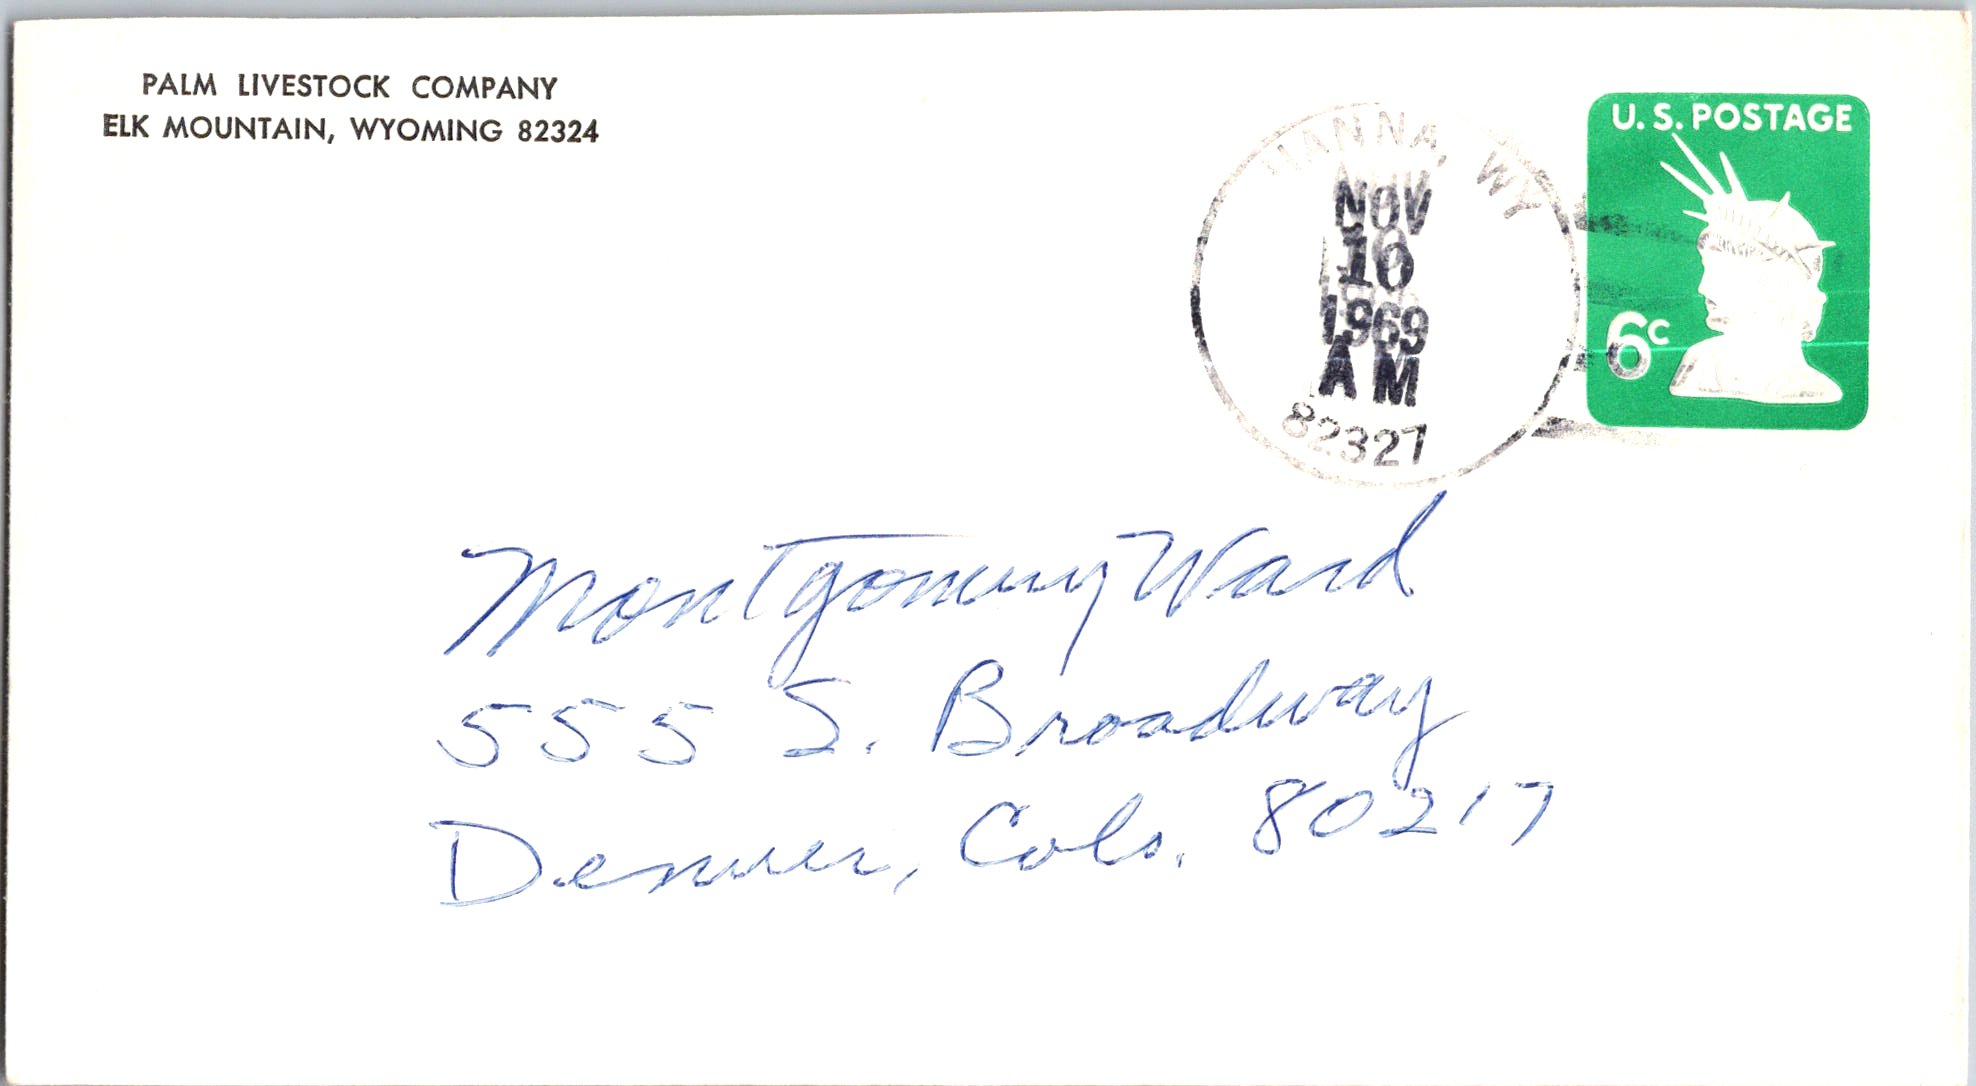 PALM LIVESTOCK COMPANY
ELK MOUNTAIN, WYOMING 82324
HANNA, WY
NOV
10
1969
AM
82327
U.S. POSTAGE
6c
Montgomery Ward
555 S. Broadway
Denver, Colo. 80217